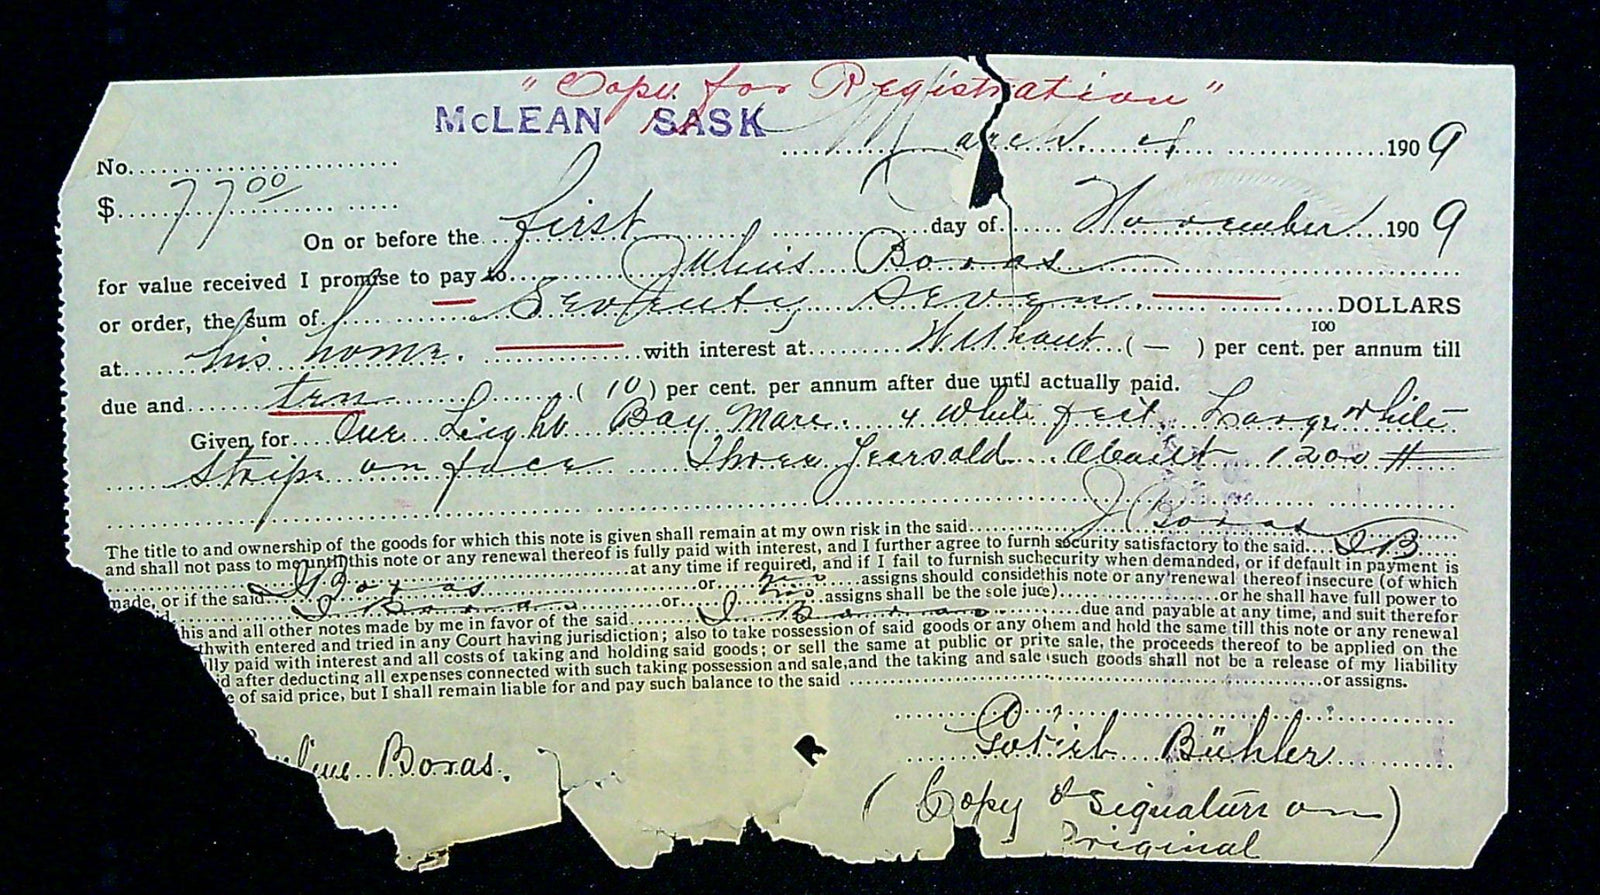 "Copy for Registration"
McLEAN SASK
March 4 1909
No.
$ 77 00
On or before the first day of November 1909
for value received I promise to pay to Julius Boras
or order, the sum of Seventy Seven DOLLARS
100
at his home. with interest at Without ( — ) per cent. per annum till
due and ten ( 10 ) per cent. per annum after due until actually paid.
Given for One Light Bay Mare. 4 white feet Large white
Stripe on face Three Years old About 1200 #
The title to and ownership of the goods for which this note is given shall remain at my own risk in the said J Boras
and shall not pass to me until this note or any renewal thereof is fully paid with interest, and I further agree to furnh security satisfactory to the said J B
at any time if required, and if I fail to furnish suchecurity when demanded, or if default in payment is
made, or if the said J Boras or his assigns should considethis note or any renewal thereof insecure (of which
J Boras or his assigns shall be the sole juce) or he shall have full power to
his and all other notes made by me in favor of the said J Boras due and payable at any time, and suit therefor
thwith entered and tried in any Court having jurisdiction; also to take possession of said goods or any ohem and hold the same till this note or any renewal
lly paid with interest and all costs of taking and holding said goods; or sell the same at public or prite sale, the proceeds thereof to be applied on the
d after deducting all expenses connected with such taking possession and sale, and the taking and sale such goods shall not be a release of my liability
e of said price, but I shall remain liable for and pay such balance to the said or assigns.
Boras.
Gotieb Bühler
(Copy of Signature on
Original)